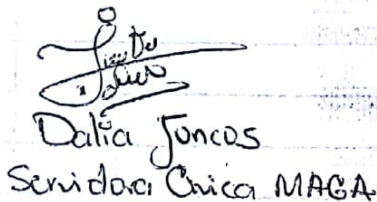 Dalia Juncos
Servidora Cívica MAGA